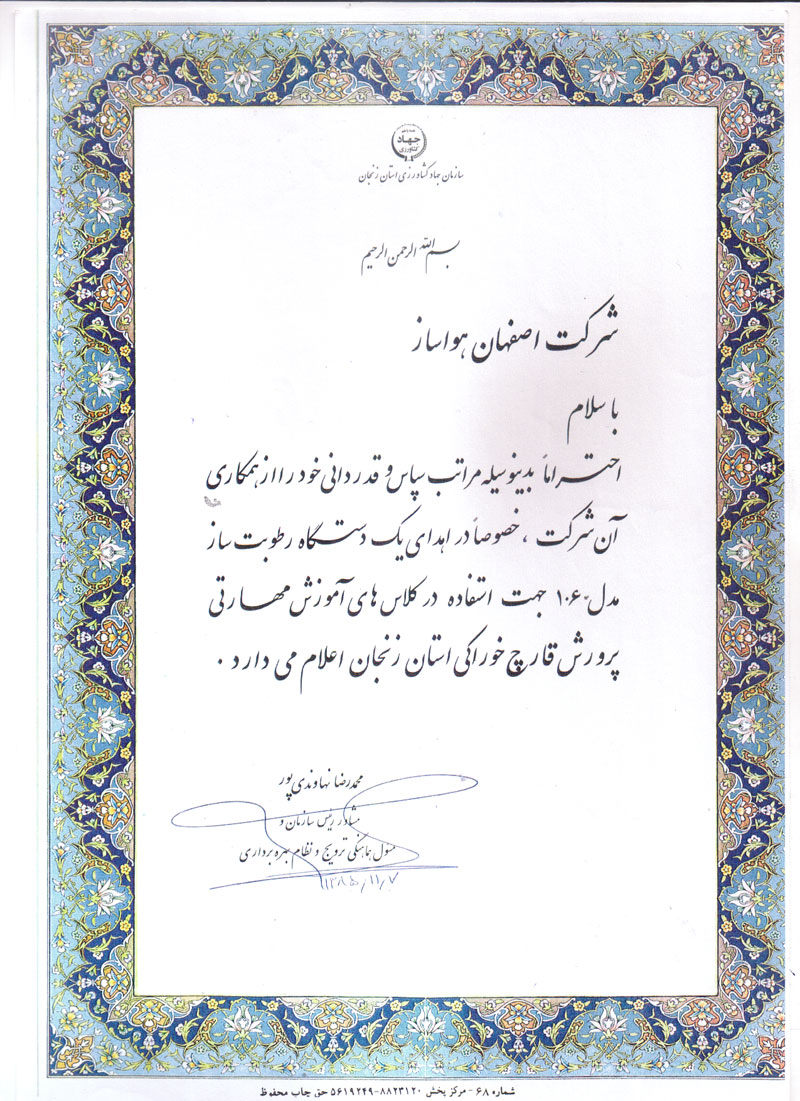 جهاد
کشاورزی
سازمان جهاد کشاورزی استان زنجان
بسم الله الرحمن الرحیم
شرکت اصفهان هواساز
با سلام
احتراماً بدینوسیله مراتب سپاس و قدردانی خود را از همکاری
آن شرکت ، خصوصاً در اهدای یک دستگاه رطوبت ساز
مدل ۱۰۶۰ جهت استفاده در کلاس های آموزش مهارتی
پرورش قارچ خوراکی استان زنجان اعلام می دارد .
محمدرضا نهاوندی پور
مشاور رئیس سازمان و
مسول هماهنگی ترویج و نظام بهره برداری
۱۳۸۵/۱۱/۷
شماره ۶۸ - مرکز پخش ۸۸۲۳۱۲۰-۵۶۱۹۲۴۹ حق چاپ محفوظ